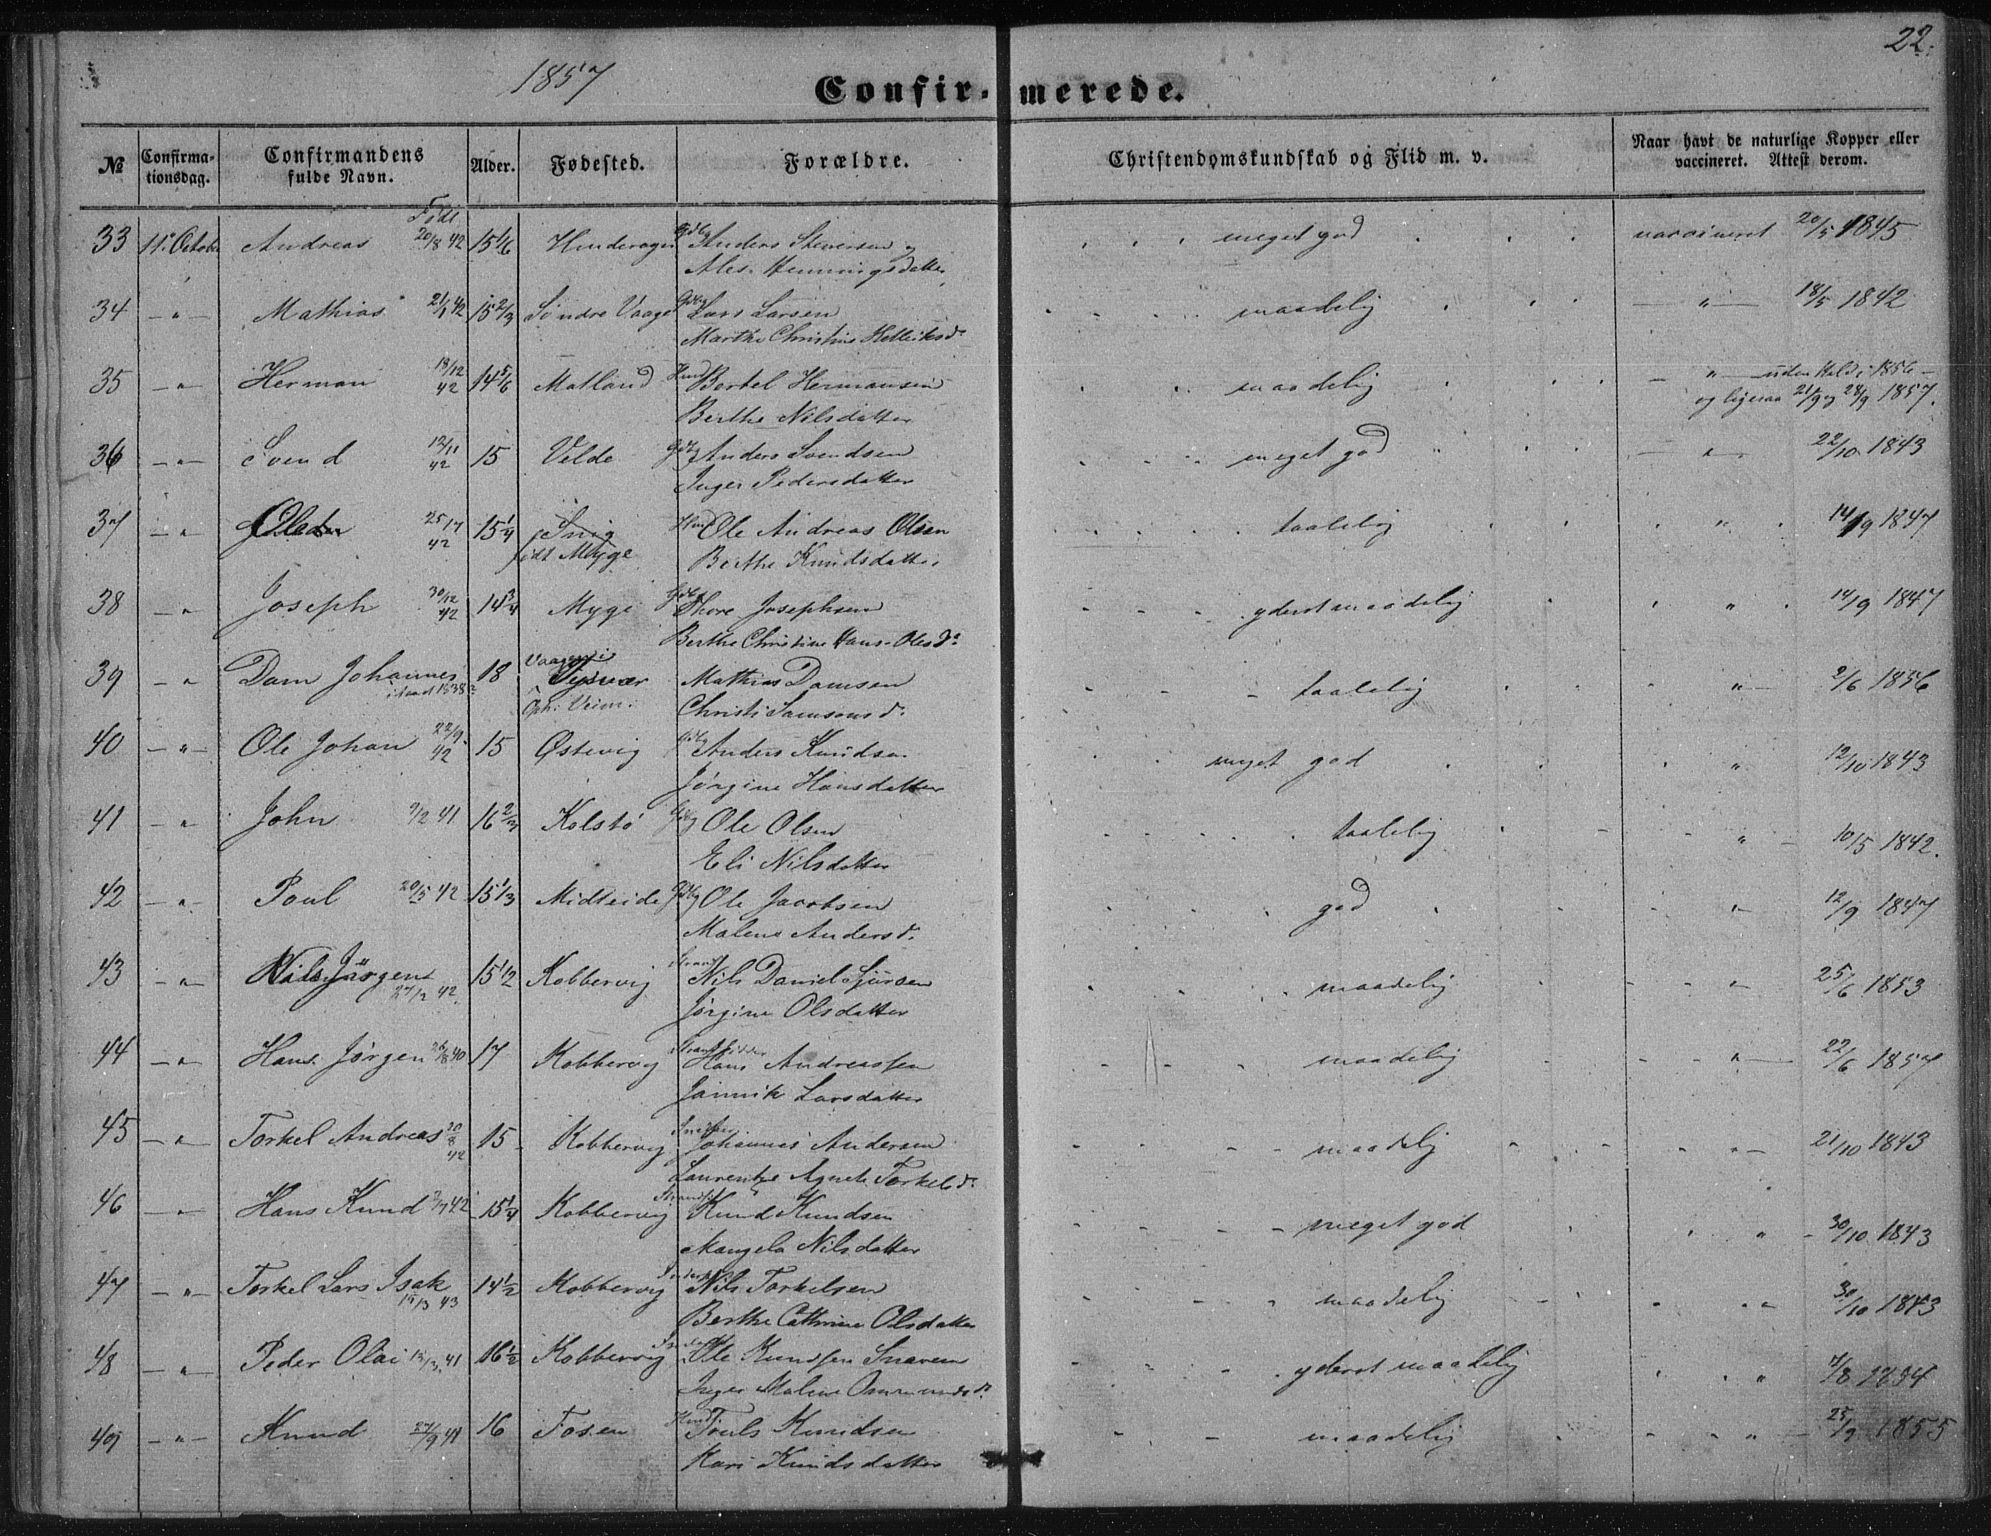 22.
1857
Confirmerede.
№
Confirmationsdag.
Confirmandens fulde Navn.
Alder.
Fødested.
Forældre.
Christendomskundskab og Flid m. v.
Naar havt de naturlige Kopper eller vaccineret. Attest derom.
Født
33 11. October Andreas 20/8 42 15 1/6 Gdbg Anders Steversen meget god vaccineret 20/5 1845
Henningsdatter
34 — " — Mathias 21/1 42 15 2/3 Søndre Vaage Gdbg Lars Larsen maadelig — " — 18/5 1842
Marthe Christine
35 — " Herman 13/12 42 14 5/6 Matland Huusm Bertel Hermansen maadelig — " — uden Held i 1856 —
Berthe Nilsdatter og ligesaa 21/9 og 28/9 1857.
36 — " — Svend 12/11 42 15 Velde Gdbg Anders Svendsen meget god — " — 22/10 1843
Inger Pedersdatter
37 — " 25/7 42 15 1/4 Huusm Ole Andreas Olsen taalelig " 14/9 1847
født Myge Berthe Knudsdatter
38 — " Joseph 30/12 42 14 3/4 Myge Gdbg Thore Josephsen yderst maadelig " 14/9 1847
Berthe Christine Hans-Olesd.
39 — " Dam Johannes 18 Mathias Damsen taalelig " — 2/6 1856
Christi Samsonsd.
40 — " — Ole Johan 22/9 42 15 Østevig Gdbg Anders Knudsen meget god " 12/10 1843
Jørgine Hansdatter
41 — " John 7/2 41 16 2/3 Kolstø Gdbg Ole Olsen taalelig " — 10/5 1842.
Eli Nilsdatter
42 — " — Poul 20/5 42 15 1/3 Midteide Gdbg Ole Jacobsen god " 12/9 1847
Malene Andersd.
43 — " Nils Jörgen 27/2 42. 15 1/2 Kobbervig Strands. Nils Daniel Sjursen maadelig " 25/6 1853
Jørgine Olsdatter
44 — " Hans Jørgen 26/8 40 17 Kobbervig Strandsidder Hans Andreassen maadelig " — 22/6 1857
Jannik Larsdatter
45 — " Torkel Andreas 20/8 42 15 Kobbervig Johannes Andersen maadelig " — 21/10 1843
Laurentze Agnete Torkelsd.
46 — " — Hans Knud 2/7 42 15 1/4 Kobbervig Strands. Knud Knudsen meget god " — 30/10 1843
Mangela Nilsdatter
47 — " — Torkel Lars Isak 15/3 43 14 1/2 Kobbervig Nils Torkelsen maadelig " 30/10 1843
Berthe Cathrine Olsdatter
48 — " Peder Olai 15/3 41 16 1/2 Kobbervig Ole Knudsen Snaren yderst maadelig " 4/8 1854
Inger Malene Ommundsd.
49 — " — Knud 27/9 41 16 Fosen Huusm. Knudsen maadelig " — 25/9 1855
Kari Knudsdatter